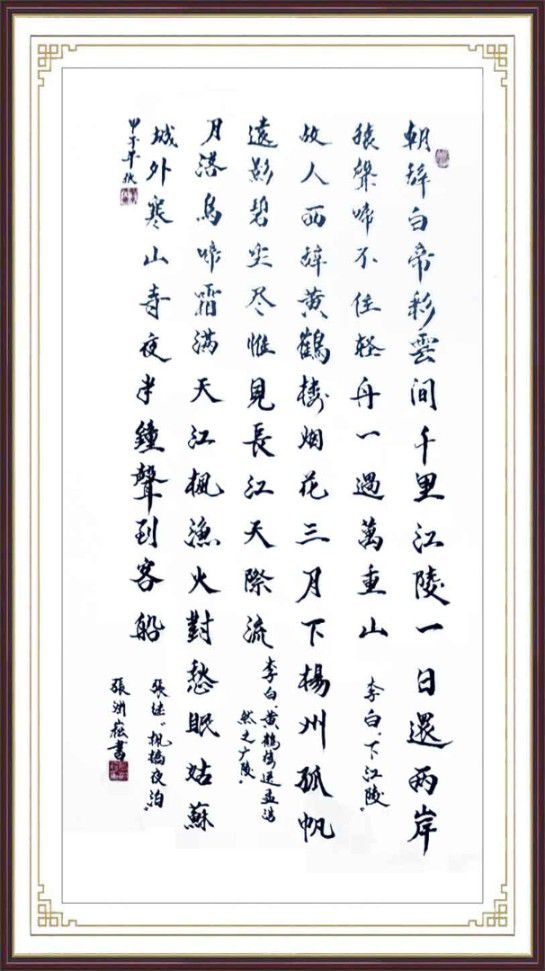 朝辞白帝彩雲间千里江陵一日還两岸
猿聲啼不住轻舟一過萬重山
李白“下江陵”
故人西辞黄鶴楼烟花三月下楊州孤帆
遠影碧空尽惟見長江天際流
李白“黄鶴楼送孟浩
然之广陵”
月落烏啼霜满天江枫漁火對愁眠姑蘇
城外寒山寺夜半鐘聲到客船
張继“枫橋夜泊”
甲子年秋
張洲崧書